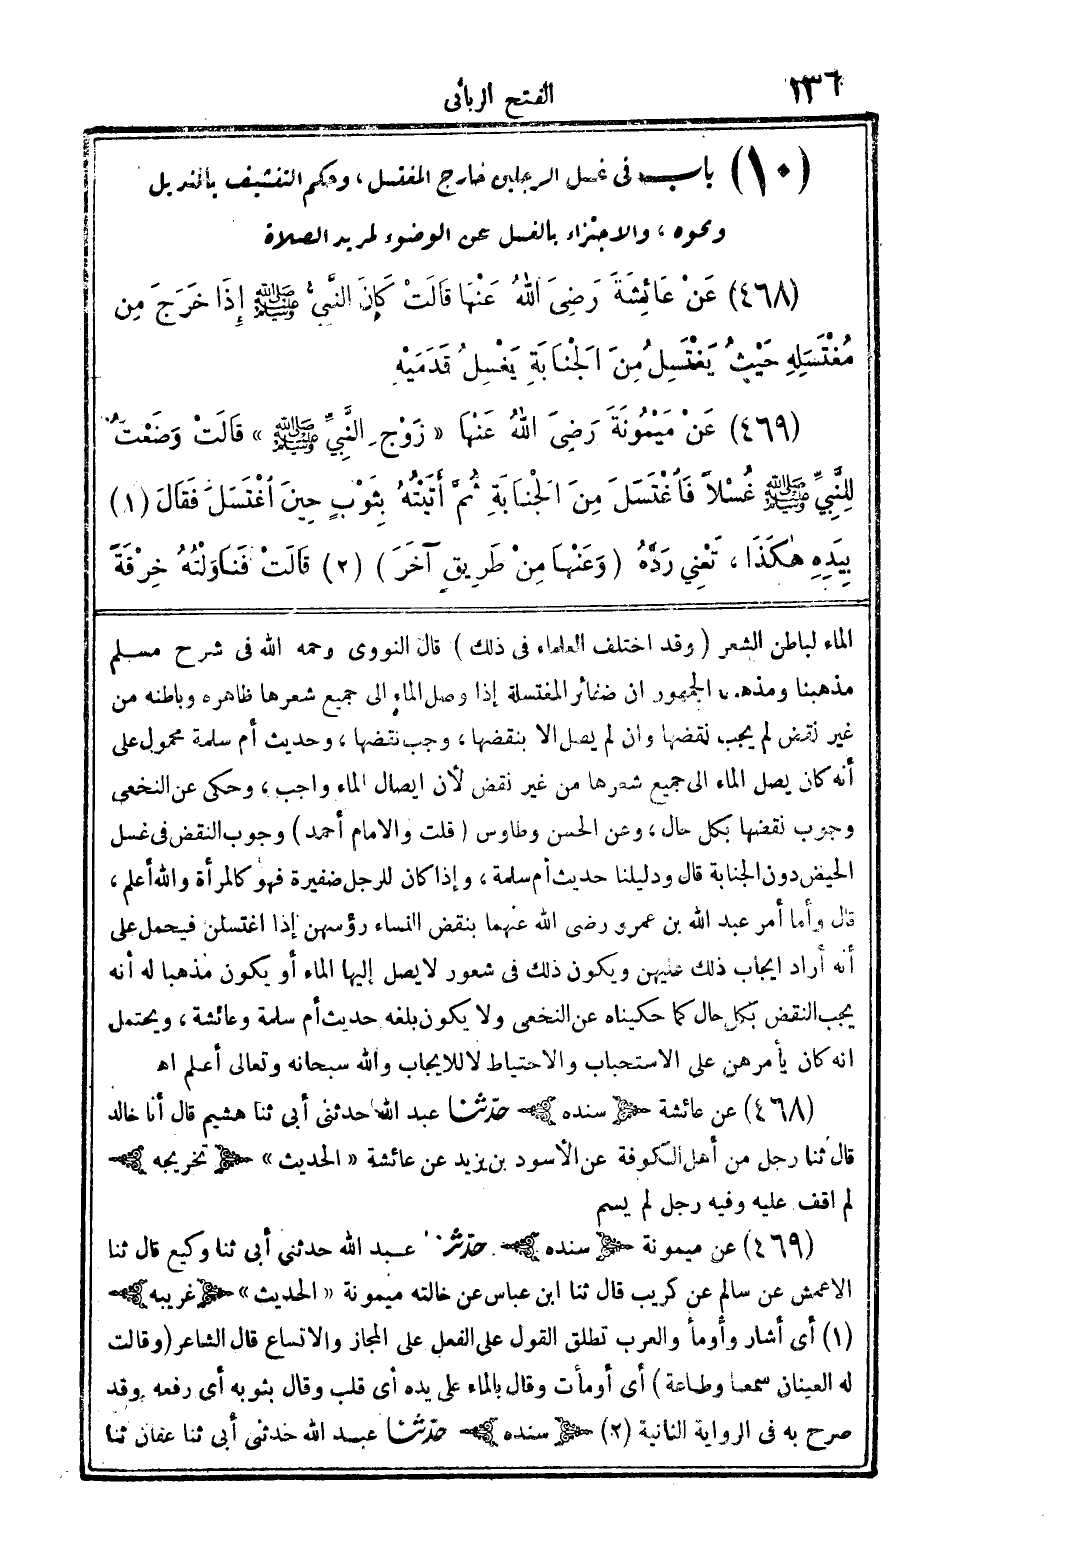 ١٣٦
الفتح الربانى
(١٠) باب فى غسل الرجلين خارج المغتسل ، وحكم التنشيف بالمنديل
ونحوه ، والاجتزاء بالغسل عن الوضوء لمريد الصلاة
(٤٦٨) عَنْ عَائِشَةَ رَضِىَ اللهُ عَنْهَا قَالَتْ كَانَ النَّبِىُّ ﷺ إِذَا خَرَجَ مِن
مُغْتَسَلِهِ حَيْثُ يَغْتَسِلُ مِنَ الْجَنَابَةِ يَغْسِلُ قَدَمَيْهِ
(٤٦٩) عَنْ مَيْمُونَةَ رَضِىَ اللهُ عَنْهَا « زَوْجِ النَّبِيِّ ﷺ » قَالَتْ وَضَعْتُ
لِلنَّبِيِّ ﷺ غُسْلاً فَاغْتَسَلَ مِنَ الْجَنَابَةِ ثُمَّ أَتَيْتُهُ بِثَوْبٍ حِينَ اغْتَسَلَ فَقَالَ (١)
بِيَدِهِ هٰكَذَا ، تَعْنِي رَدَّهُ (وَعَنْهَا مِنْ طَرِيقٍ آخَرَ) (٢) قَالَتْ فَنَاوَلْتُهُ خِرْقَةً
الماء لباطن الشعر (وقد اختلف العلماء فى ذلك) قال النووى رحمه الله فى شرح مسلم
مذهبنا ومذهب الجمهور ان ضفائر المغتسلة إذا وصل الماء الى جميع شعرها ظاهره وباطنه من
غير نقض لم يجب نقضها وان لم يصل الا بنقضها ، وجب نقضها ، وحديث أم سلمة محمول على
أنه كان يصل الماء الى جميع شعرها من غير نقض لأن ايصال الماء واجب ، وحكى عن النخعى
وجوب نقضها بكل حال ، وعن الحسن وطاوس (قلت والامام أحمد) وجوب النقض فى غسل
الحيض دون الجنابة قال ودليلنا حديث أم سلمة ، وإذا كان للرجل ضفيرة فهو كالمرأة والله أعلم ،
قال وأما أمر عبد الله بن عمرو رضى الله عنهما بنقض النساء رؤسهن إذا اغتسلن فيحمل على
أنه أراد ايجاب ذلك عليهن ويكون ذلك فى شعور لا يصل إليها الماء أو يكون مذهبا له أنه
يجب النقض بكل حال كما حكيناه عن النخعى ولا يكون بلغه حديث أم سلمة وعائشة ، ويحتمل
انه كان يأمرهن على الاستحباب والاحتياط لا للايجاب والله سبحانه وتعالى أعلم اه
(٤٦٨) عن عائشة ﴿سنده﴾ حدثنا عبد الله حدثنى أبى ثنا هشيم قال أنا خالد
قال ثنا رجل من أهل الكوفة عن الأسود بن يزيد عن عائشة « الحديث » ﴿تخريجه﴾
لم اقف عليه وفيه رجل لم يسم
(٤٦٩) عن ميمونة ﴿سنده﴾ حدثنا عبد الله حدثني أبى ثنا وكيع قال ثنا
الاعمش عن سالم عن كريب قال ثنا ابن عباس عن خالته ميمونة « الحديث » ﴿غريبه﴾
(١) أى أشار وأومأ والعرب تطلق القول على الفعل على المجاز والاتساع قال الشاعر (وقالت
له العينان سمعا وطاعة) أى أومأت وقال بالماء على يده أى قلب وقال بثوبه أى رفعه وقد
صرح به فى الرواية الثانية (٢) ﴿سنده﴾ حدثنا عبد الله حدثنى أبى ثنا عفان ثنا